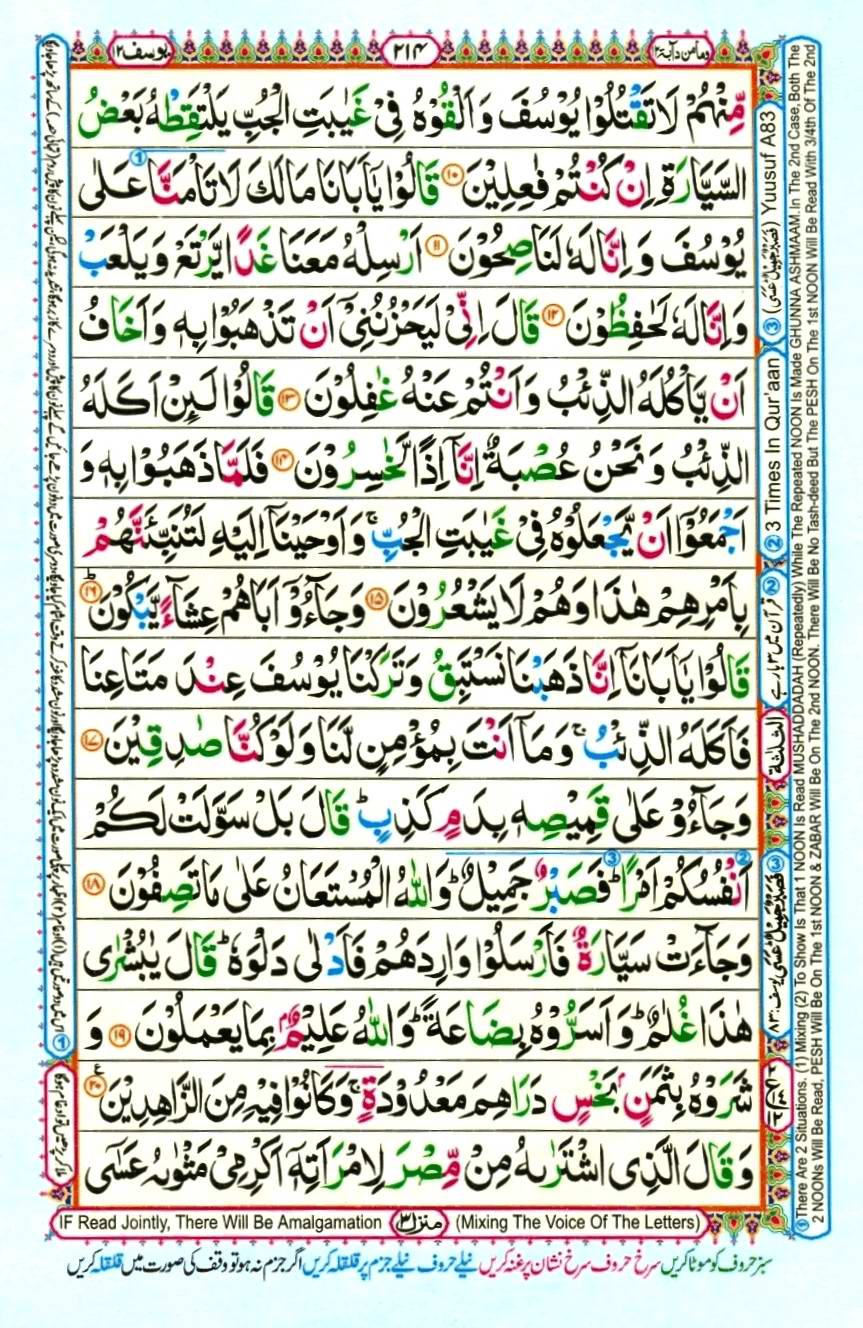 وما من دآبۃ ١٢
٢١٤
یوسف ١٢
مِّنْهُمْ لَا تَقْتُلُوْا یُوْسُفَ وَاَلْقُوْهُ فِیْ غَیٰبَتِ الْجُبِّ یَلْتَقِطْهُ بَعْضُ
السَّیَّارَةِ اِنْ كُنْتُمْ فٰعِلِیْنَ ۝۱۰ قَالُوْا یٰۤاَبَانَا مَا لَكَ لَا تَاْمَنَّا عَلٰی
یُوْسُفَ وَ اِنَّا لَهٗ لَنٰصِحُوْنَ ۝۱۱ اَرْسِلْهُ مَعَنَا غَدًا یَّرْتَعْ وَ یَلْعَبْ
وَ اِنَّا لَهٗ لَحٰفِظُوْنَ ۝۱۲ قَالَ اِنِّیْ لَیَحْزُنُنِیْۤ اَنْ تَذْهَبُوْا بِهٖ وَ اَخَافُ
اَنْ یَّاْكُلَهُ الذِّئْبُ وَ اَنْتُمْ عَنْهُ غٰفِلُوْنَ ۝۱۳ قَالُوْا لَىِٕنْ اَكَلَهُ
الذِّئْبُ وَ نَحْنُ عُصْبَةٌ اِنَّاۤ اِذًا لَّخٰسِرُوْنَ ۝۱۴ فَلَمَّا ذَهَبُوْا بِهٖ وَ
اَجْمَعُوْۤا اَنْ یَّجْعَلُوْهُ فِیْ غَیٰبَتِ الْجُبِّ ۚ وَ اَوْحَیْنَاۤ اِلَیْهِ لَتُنَبِّئَنَّهُمْ
بِاَمْرِهِمْ هٰذَا وَ هُمْ لَا یَشْعُرُوْنَ ۝۱۵ وَ جَآءُوْۤ اَبَاهُمْ عِشَآءً یَّبْكُوْنَ ؕ۝۱۶
قَالُوْا یٰۤاَبَانَاۤ اِنَّا ذَهَبْنَا نَسْتَبِقُ وَ تَرَكْنَا یُوْسُفَ عِنْدَ مَتَاعِنَا
فَاَكَلَهُ الذِّئْبُ ۚ وَ مَاۤ اَنْتَ بِمُؤْمِنٍ لَّنَا وَ لَوْ كُنَّا صٰدِقِیْنَ ۝۱۷
وَ جَآءُوْ عَلٰی قَمِیْصِهٖ بِدَمٍ كَذِبٍ ؕ قَالَ بَلْ سَوَّلَتْ لَكُمْ
اَنْفُسُكُمْ اَمْرًا ؕ فَصَبْرٌ جَمِیْلٌ ؕ وَ اللّٰهُ الْمُسْتَعَانُ عَلٰی مَا تَصِفُوْنَ ۝۱۸
وَ جَآءَتْ سَیَّارَةٌ فَاَرْسَلُوْا وَارِدَهُمْ فَاَدْلٰی دَلْوَهٗ ؕ قَالَ یٰبُشْرٰی
هٰذَا غُلٰمٌ ؕ وَ اَسَرُّوْهُ بِضَاعَةً ؕ وَ اللّٰهُ عَلِیْمٌۢ بِمَا یَعْمَلُوْنَ ۝۱۹ وَ
شَرَوْهُ بِثَمَنٍۭ بَخْسٍ دَرَاهِمَ مَعْدُوْدَةٍ ۚ وَ كَانُوْا فِیْهِ مِنَ الزَّاهِدِیْنَ ۝۲۰
وَ قَالَ الَّذِی اشْتَرٰىهُ مِنْ مِّصْرَ لِامْرَاَتِهٖۤ اَكْرِمِیْ مَثْوٰىهُ عَسٰۤی
IF Read Jointly, There Will Be Amalgamation منزل ٣ (Mixing The Voice Of The Letters)
سبز حروف کو موٹا کریں سرخ حروف سرخ نشان پر غنہ کریں نیلے حروف نیلے جزم پر قلقلہ کریں اگر جزم نہ ہو تو وقف کی صورت میں قلقلہ کریں
① There Are 2 Situations. (1) Mixing (2) To Show Is That 1 NOON Is Read MUSHADDADAH (Repeatedly) While The Repeated NOON Is Made GHUNNA ASHMAAM. In The 2nd Case, Both The
2 NOONs Will Be Read, PESH Will Be On The 1st NOON & ZABAR Will Be On The 2nd NOON. There Will Be No Tash-deed But The PESH On The 1st NOON Will Be Read With 3/4th Of The 2nd
② 3 Times In Qur'aan ③ Yuusuf A83
② قرآن میں ٣ بار ہے
الثلثة